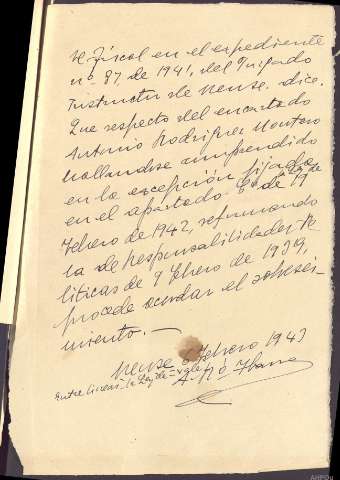 El Fiscal en el expediente
nº 87 de 1941, del Juzgado
Instructor de Orense. dice.
Que respecto del encartado
Antonio Rodriguez Montero
hallandose comprendido
en la excepción fijada
en el apartado de la Ley de 19
Febrero de 1942, reformando
la de Responsabilidades Po
líticas de 9 Febrero de 1939,
procede acordar el sobresei-
miento. —
Orense 6 Febrero 1943
Entre lineas = la Ley de = vale